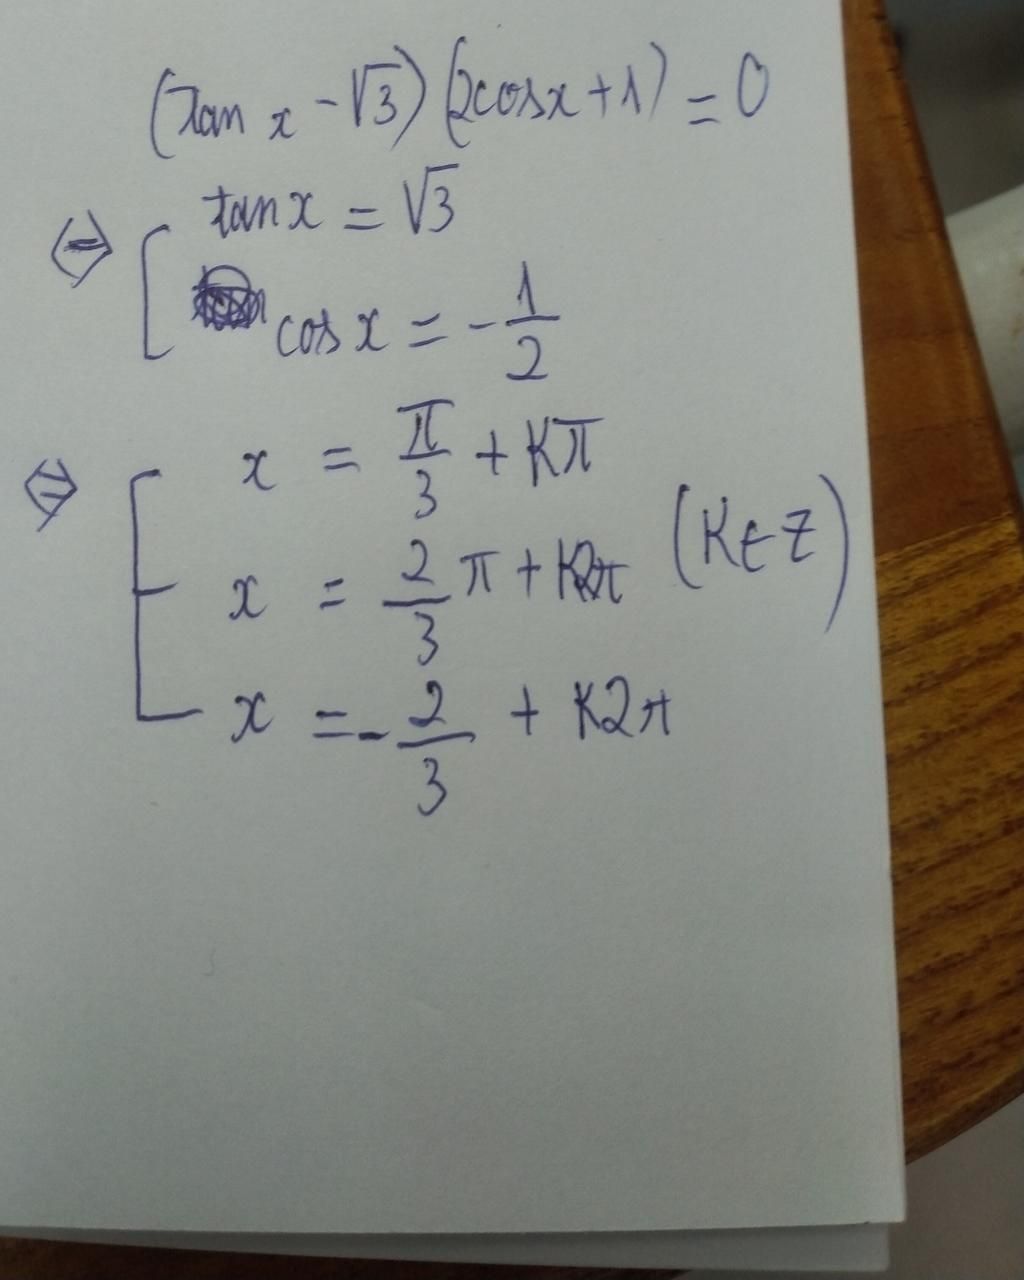 (tan x - √3)(2cosx + 1) = 0
⇔ [ tan x = √3
cos x = - 1/2
⇔ [ x = π/3 + Kπ
x = 2/3 π + K2π (K ∈ Z)
x = - 2/3 + K2π